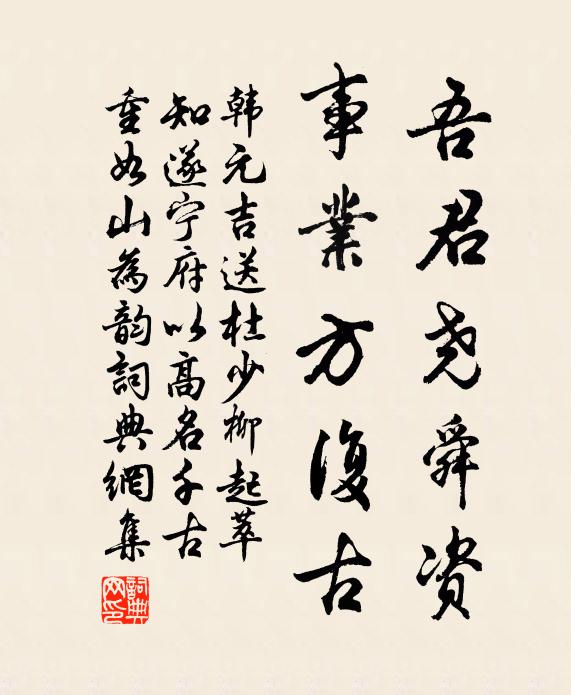 吾君尧舜资
事業方復古
韩元吉送杜少柳起莘
知遂宁府以高名千古
重如山為韵詞典網集
詞典网印